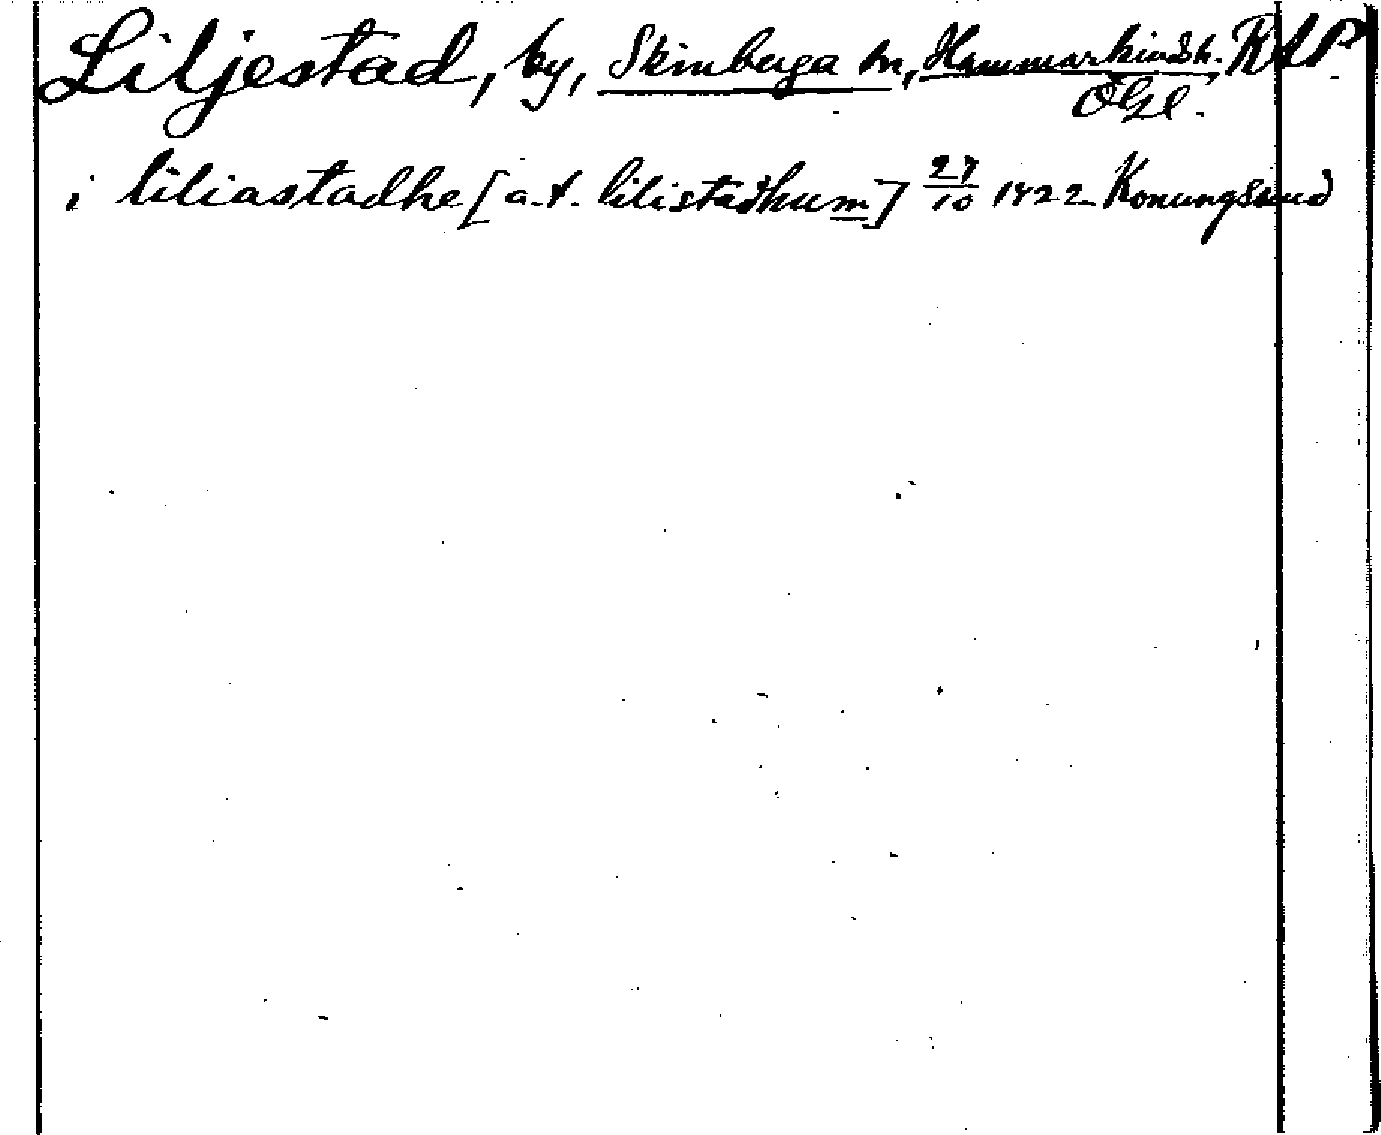 Liljestad, by, Skönberga sn, Hammarkinds h. RAP
ÖGl.
i liliastadhe [a.t. lilistadhum] 27/10 1422 Konungssund